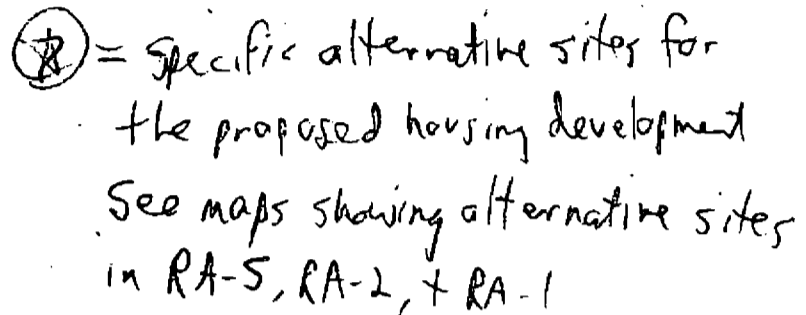 = Specific alternative sites for
the proposed housing development
See maps showing alternative sites
in RA-5, RA-2, + RA-1